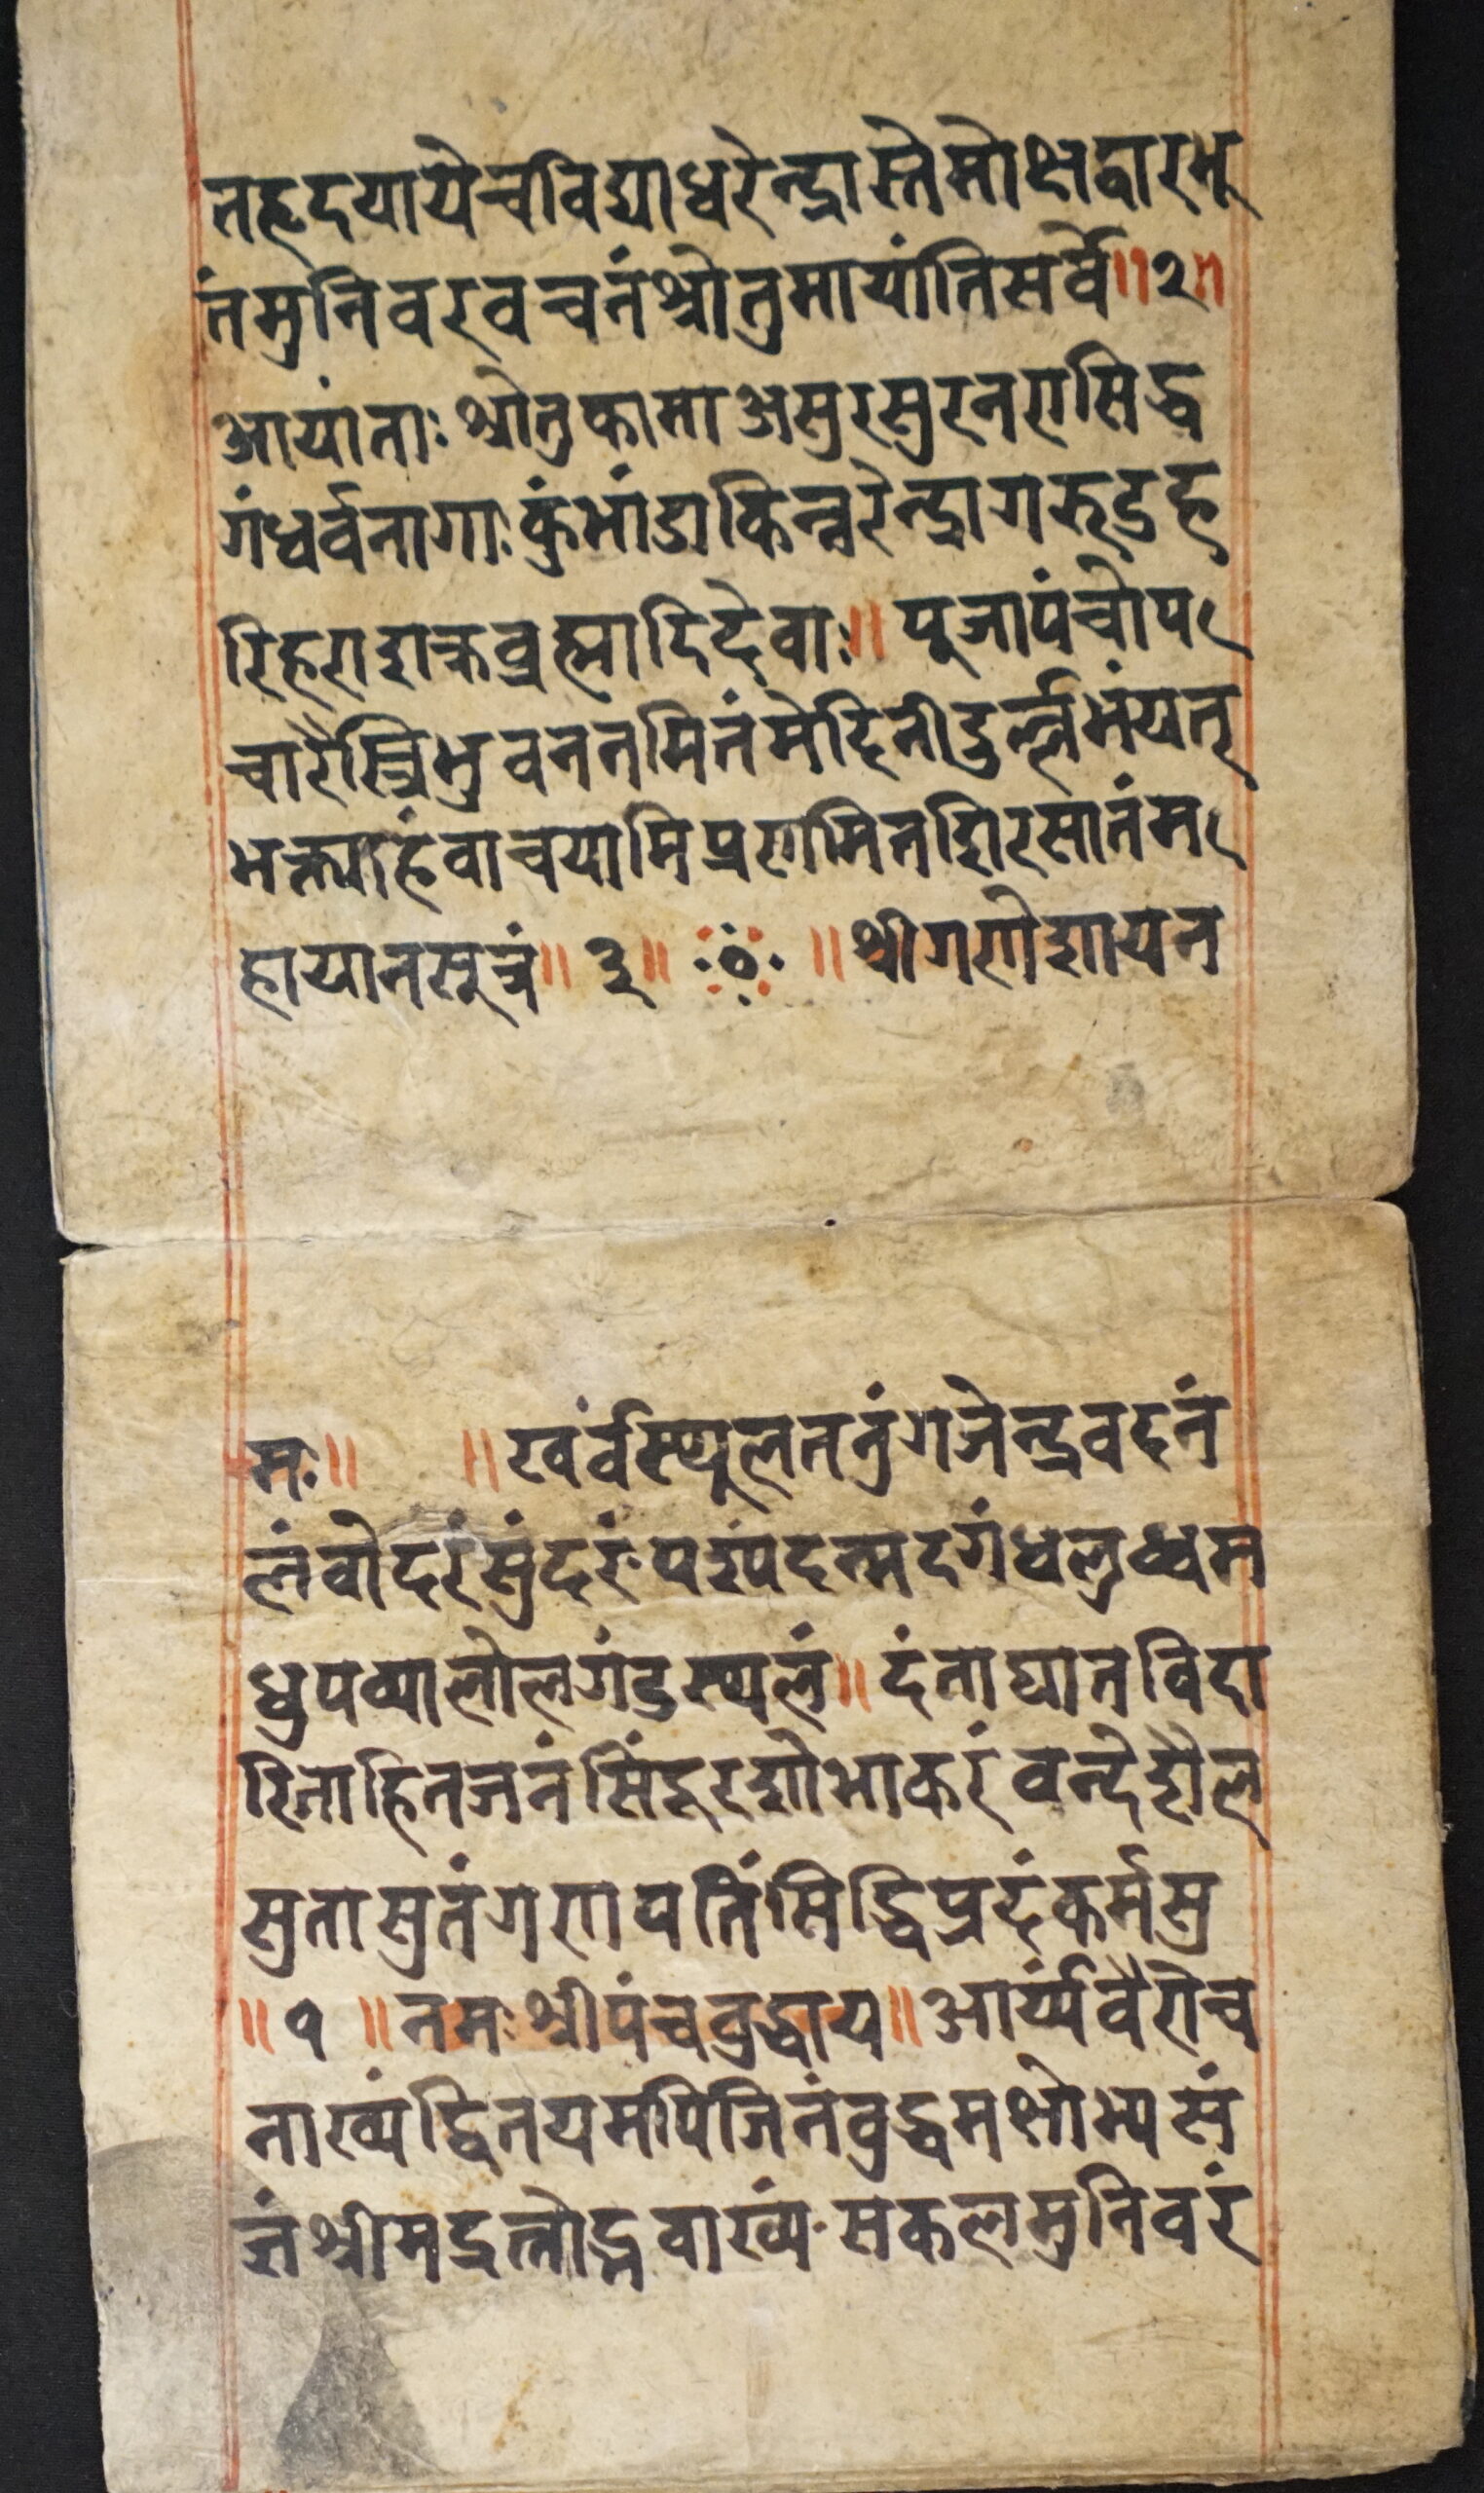 तहृदयायेचविद्याधरेन्द्रास्तेमोक्षद्वारभू
तंमुनिवरवचनंश्रोतुमायांतिसर्वे॥२॥
आयांताःश्रोतुकामाअसुरसुरनरासिद्ध
गंधर्वनागाःकुंभांडाकिन्नरेन्द्रागरुडह
रिहराशक्रब्रह्मादिदेवाः॥पुजापंचोप
चारैस्त्रिभुवननमितंमेदिनीदुर्ल्लभंयत्
भक्त्याहंवाचयामिप्रणमितशिरसातंम
हायानसूत्रं॥३॥ ॥श्रीगणेशायन
मः॥ ॥खर्वंस्थुलतनुंगजेन्द्रवदनं
लंवोदरंसुंदरंपरंपदन्मदगंधलुब्धम
धुपव्यालोलगंडस्थलं॥दंताघातविदा
रिताहितजनंसिंदूरशोभाकरंवन्देशैल
सुतासुतंगणपतिंसिद्धिप्रदंकर्मसु
॥१॥नमःश्रीपंचबुद्धाय॥आर्य्यवैरोच
नाख्यंद्वितयमपिजिनंवुद्धमक्षोभ्यसं
ज्ञंश्रीमद्रत्नोद्भवाख्यंसकलमुनिवरं